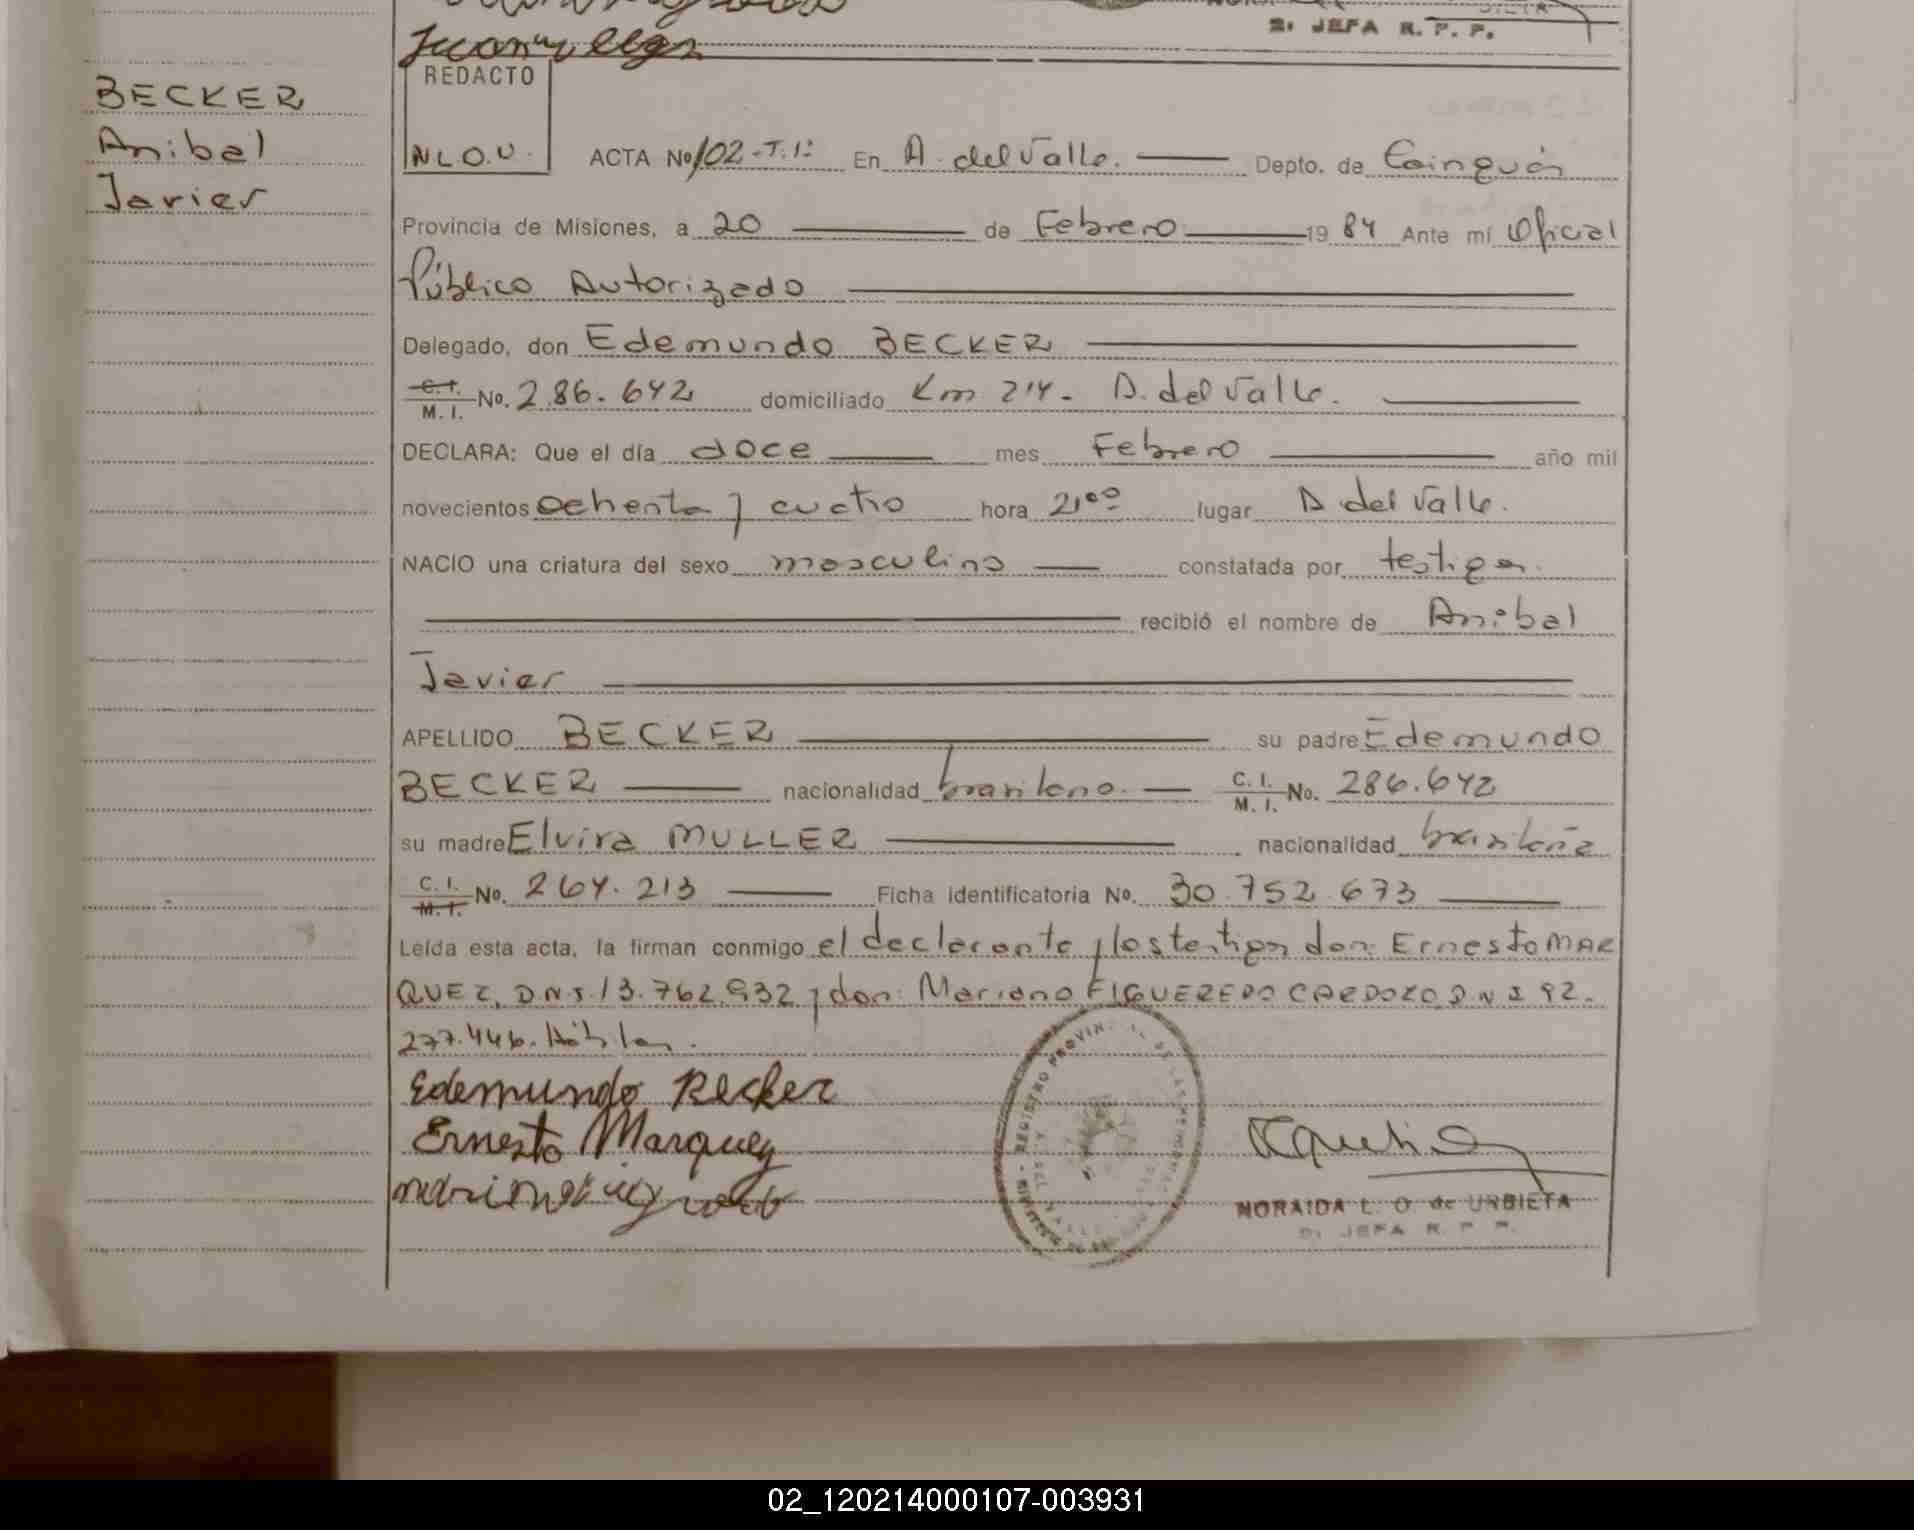 2ª JEFA R. P. P.
BECKER
Anibal
Javier
REDACTO
N L O. U.
ACTA No 102-T.1º En A. del Valle. Depto. de Cainguás
Provincia de Misiones, a 20 de Febrero 1984 Ante mí Oficial
Público Autorizado
Delegado, don Edemundo BECKER
C. I. M. I. No. 286.642 domiciliado Km 214. A. del Valle.
DECLARA: Que el día doce mes Febrero año mil
novecientos ochenta y cuatro hora 21⁰⁰ lugar A del Valle.
NACIO una criatura del sexo masculino constatada por testigos.
recibió el nombre de Anibal
Javier
APELLIDO BECKER su padre Edemundo
BECKER nacionalidad brasileno. C. I. M. I. No. 286.642
su madre Elvira MULLER nacionalidad brasileña
C. I. M. I. No. 264.213 Ficha identificatoria No. 30.752.673
Leída esta acta, la firman conmigo el declarante y los testigos don: Ernesto MAR
QUEZ, DNI.13.762.932 y don: Mariano FIGUEREDO CARDOZO, DNI 92.
277.446. Hábiles.
Edemundo Becker
Ernesto Marquez
REGISTRO PROVINCIAL DE LAS PERSONAS
NORAIDA L. O. de URBIETA
2ª JEFA R. P. P.
02_120214000107-003931